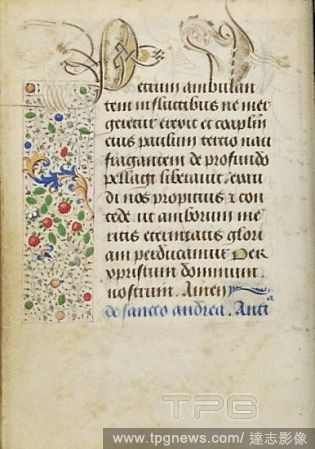 Petrum ambulan
tem in fluctibus ne mer
geretur erexit et coaplm
eius paulum tercio nau
fragantem de profundo
pellagi liberauit. exau
di nos propitius & con
cede. ut amborum me
ritis eternitatis glori
am perducamur Per
xpristum dominum
nostrum. Amen
de sancto andrea. Anti
TPG
www.tpgnews.com/達志影像